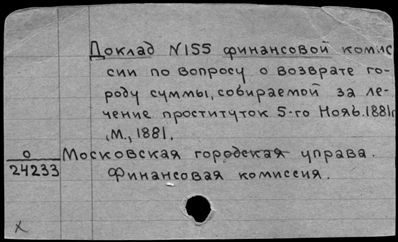 Доклад №155 финансовой комис
сии по вопросу о возврате го-
роду суммы, собираемой за ле-
чение проституток 5-го Нояб. 1881г.
,М., 1881.
о
24233
Московская городская управа.
Финансовая комиссия.
x